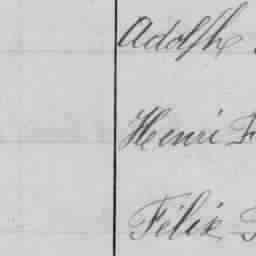 Adolphe
Henri F
Félix F